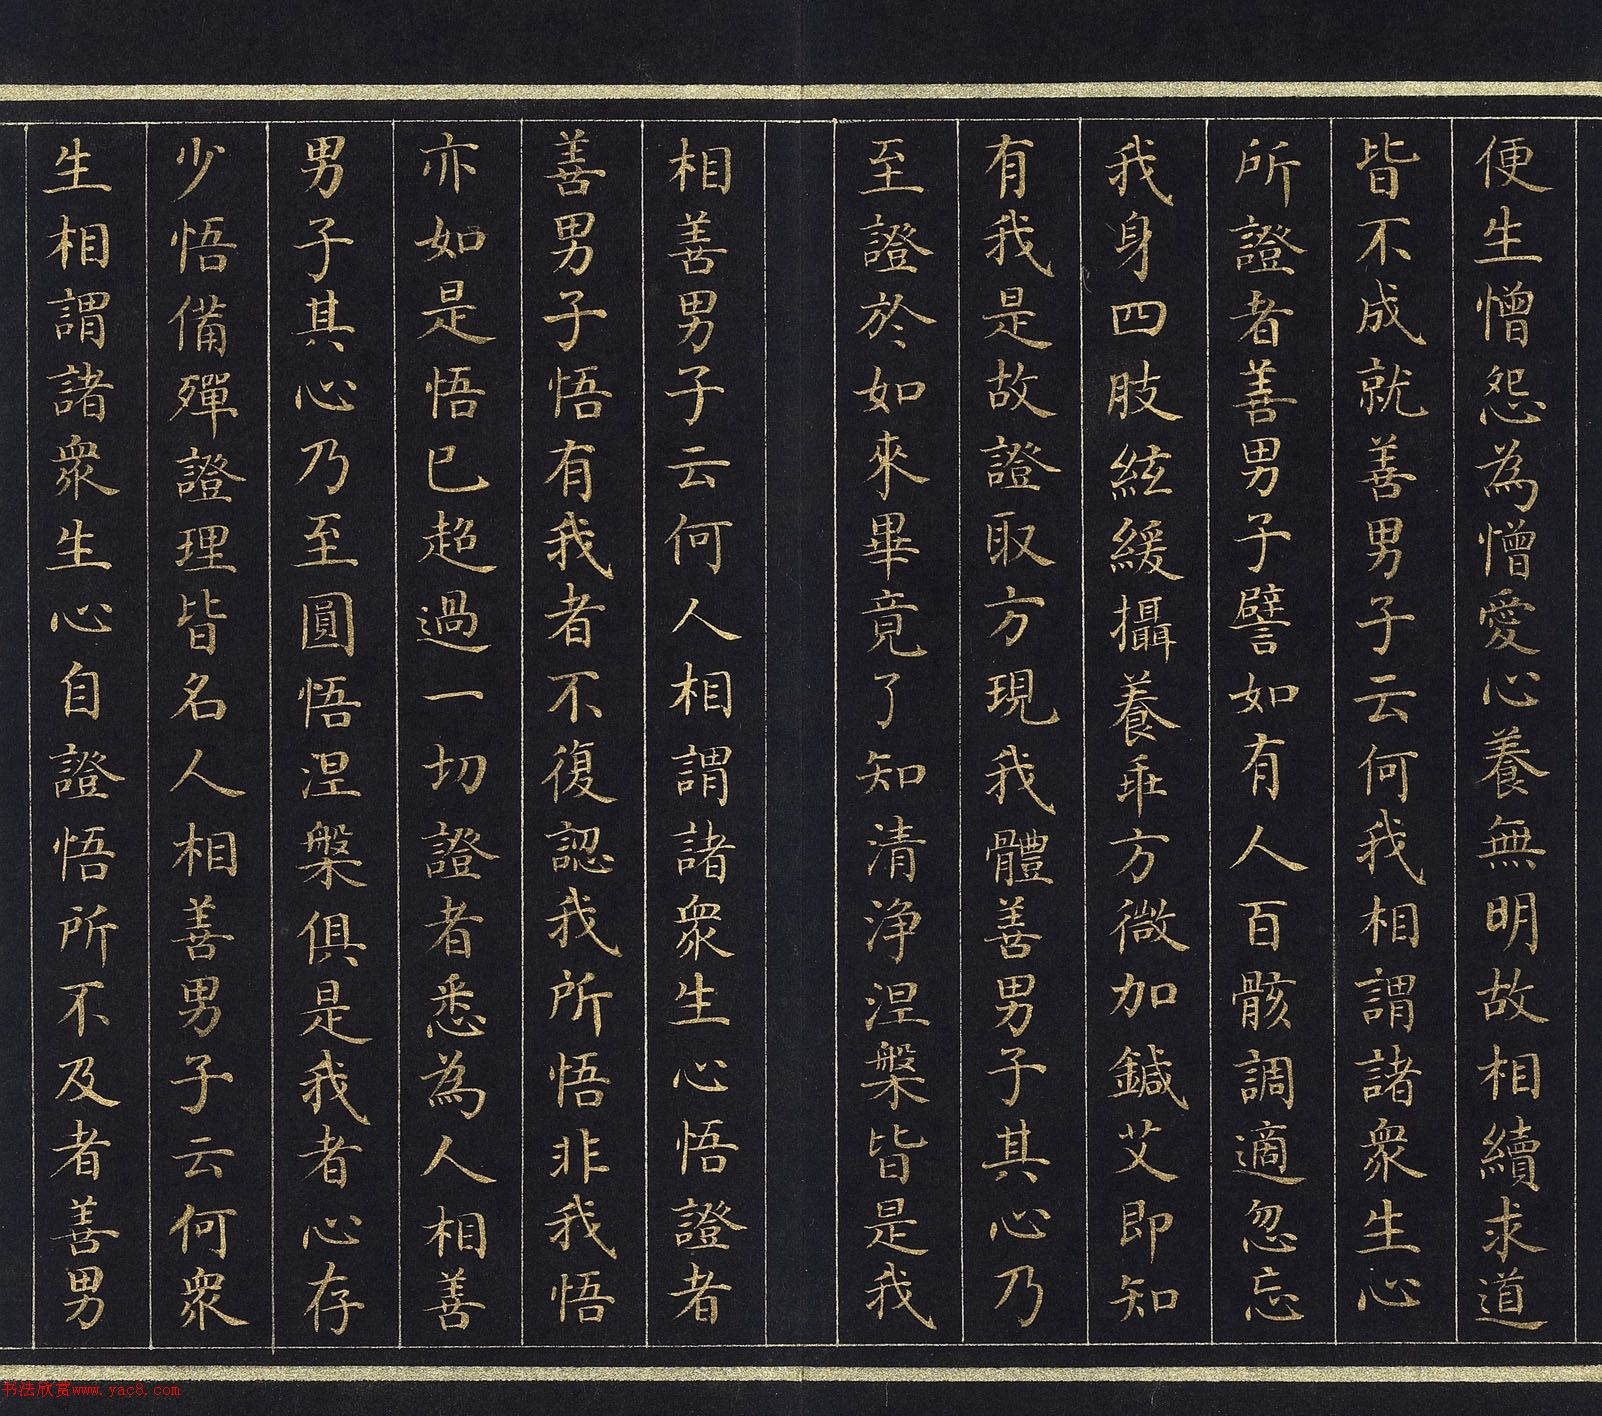 便生憎怨為憎愛心養無明故相續求道
皆不成就善男子云何我相謂諸衆生心
所證者善男子譬如有人百骸調適忽忘
我身四肢絃緩攝養乖方微加鍼艾即知
有我是故證取方現我體善男子其心乃
至證於如來畢竟了知清淨涅槃皆是我
相善男子云何人相謂諸衆生心悟證者
善男子悟有我者不復認我所悟非我悟
亦如是悟已超過一切證者悉為人相善
男子其心乃至圓悟涅槃俱是我者心存
少悟備殫證理皆名人相善男子云何衆
生相謂諸衆生心自證悟所不及者善男
书法欣赏www.yac8.com